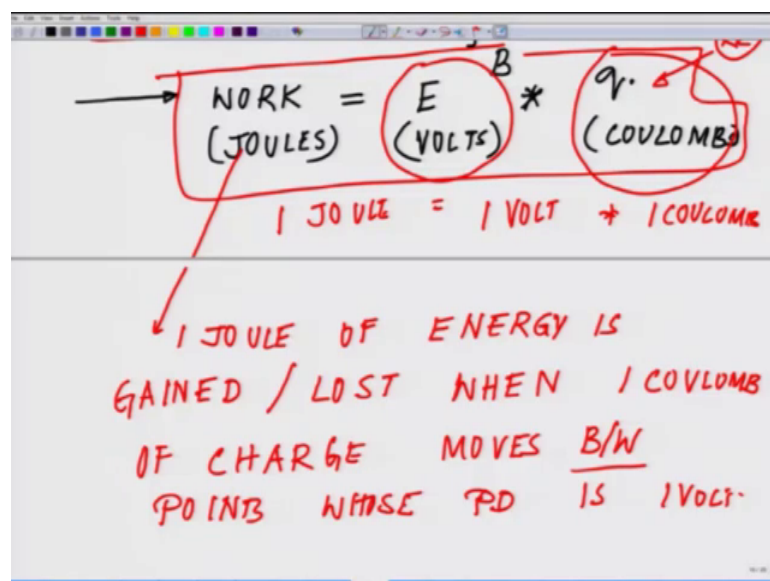 B
WORK = E * q.
(JOULES) (VOLTS) (COULOMBS)
1 JOULE = 1 VOLT * 1 COULOMB
1 JOULE OF ENERGY IS
GAINED / LOST WHEN 1 COULOMB
OF CHARGE MOVES B/W
POINTS WHOSE PD IS 1 VOLT.